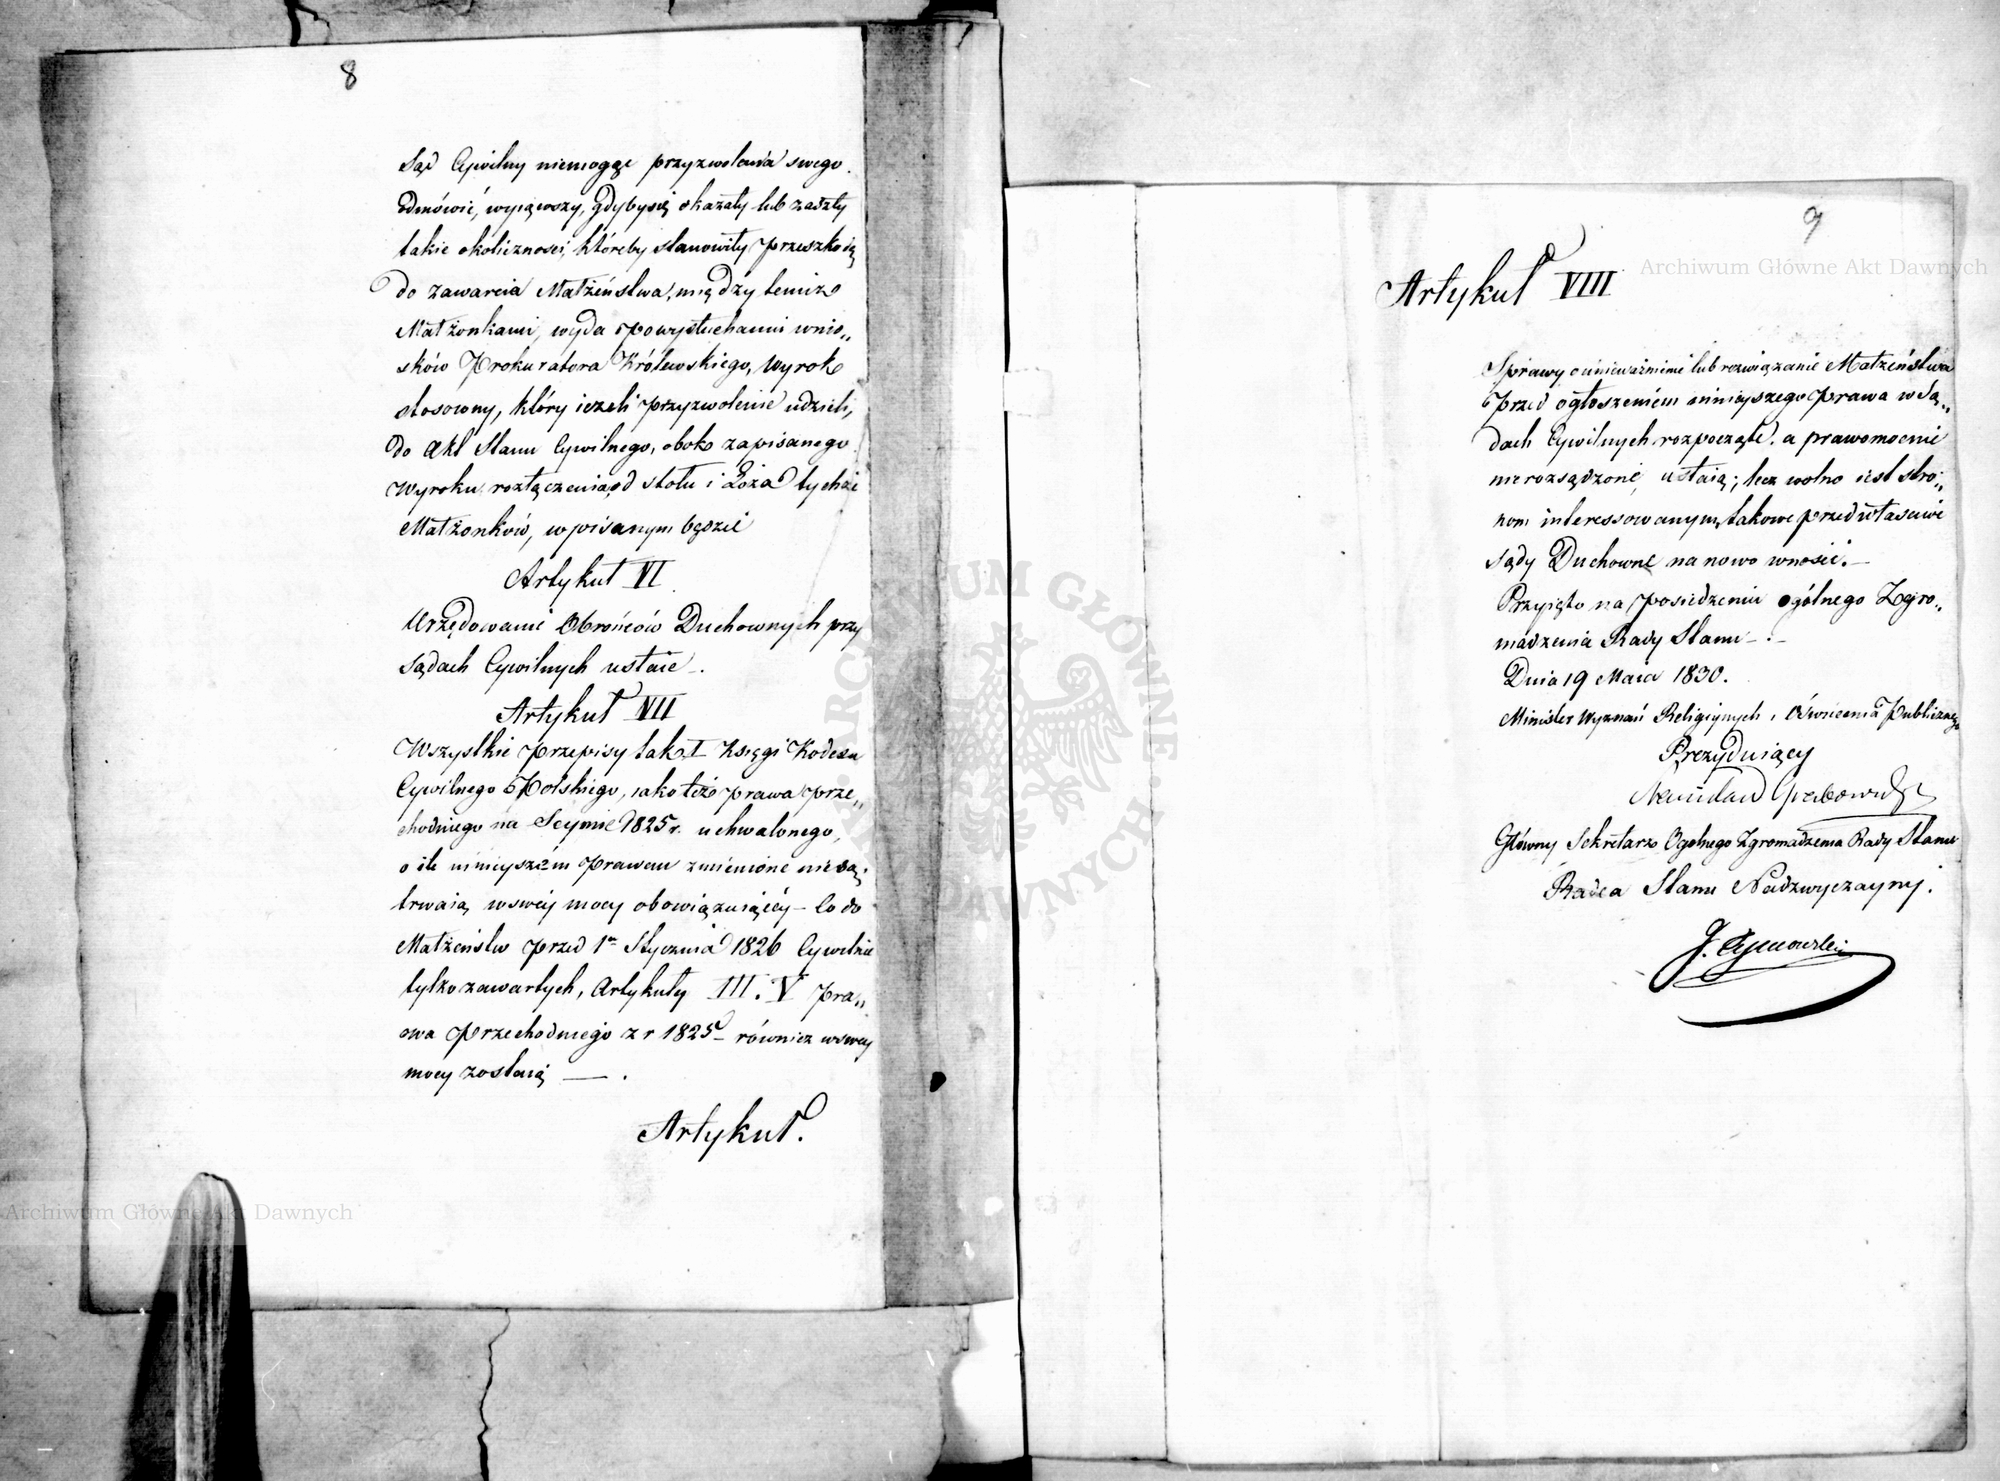 8
Sąd Cywilny niemogąc przyzwolenia swego
odmówić, wyiąwszy, gdyby się okazały lub zaszły
takie okoliczności, któreby stanowiły przeszkodę
do zawarcia Małżeństwa, między temiż
Małżonkami, wyda po wysłuchaniu wnio„
sków Prokuratora Królewskiego, Wyrok
stosowny, który ieżeli przyzwolenie udzieli,
do Akt Stanu Cywilnego, obok zapisanego
Wyroku rozłączenia od stołu i Łoża tychże
Małżonków, wpisanym będzie
Artykuł VI
Urzędowanie Obrońców Duchownych przy
Sądach Cywilnych ustaie —.
Artykuł VII
Wszystkie przepisy tak I Księgi Kodexu
Cywilnego Polskiego, iako też prawa prze„
chodniego na Seymie 1825 r. uchwalonego,
o ile ninieyszém Prawem zmienione nie są,
trwaią w swéy mocy obowiązuiącéy — Co do
Małżeństw przed 1m Stycznia 1826 Cywilnie
tylko zawartych, Artykuły III. V pra„
wa przechodniego z r 1825 — również w swey
mocy zostaią — .
Artykuł.
9
Artykuł VIII
Sprawy o unieważnienie lub rozwiązanie Małżeństwa
przed ogłoszeniem ninieyszego prawa w Są„
dach Cywilnych rozpoczęte, a prawomocnie
nierozsądzone, ustaią; lecz wolno iest stro„
nom interessowanym, takowe przed właściwe
sądy Duchowne na nowo wnosić. —
Przyięto na posiedzeniu ogólnego Zgro„
madzenia Rady Stanu — . —
Dnia 19 Maia 1830.
Minister Wyznań Religiynych i Oświecenia Publicznego
Prezyduiący
Stanisław Grabowski
Główny Sekretarz Ogolnego Zgromadzenia Rady Stanu
Radca Stanu Nadzwyczayny.
Archiwum Główne Akt Dawnych
Archiwum Główne Akt Dawnych
ARCHIWUM GŁÓWNE AKT DAWNYCH